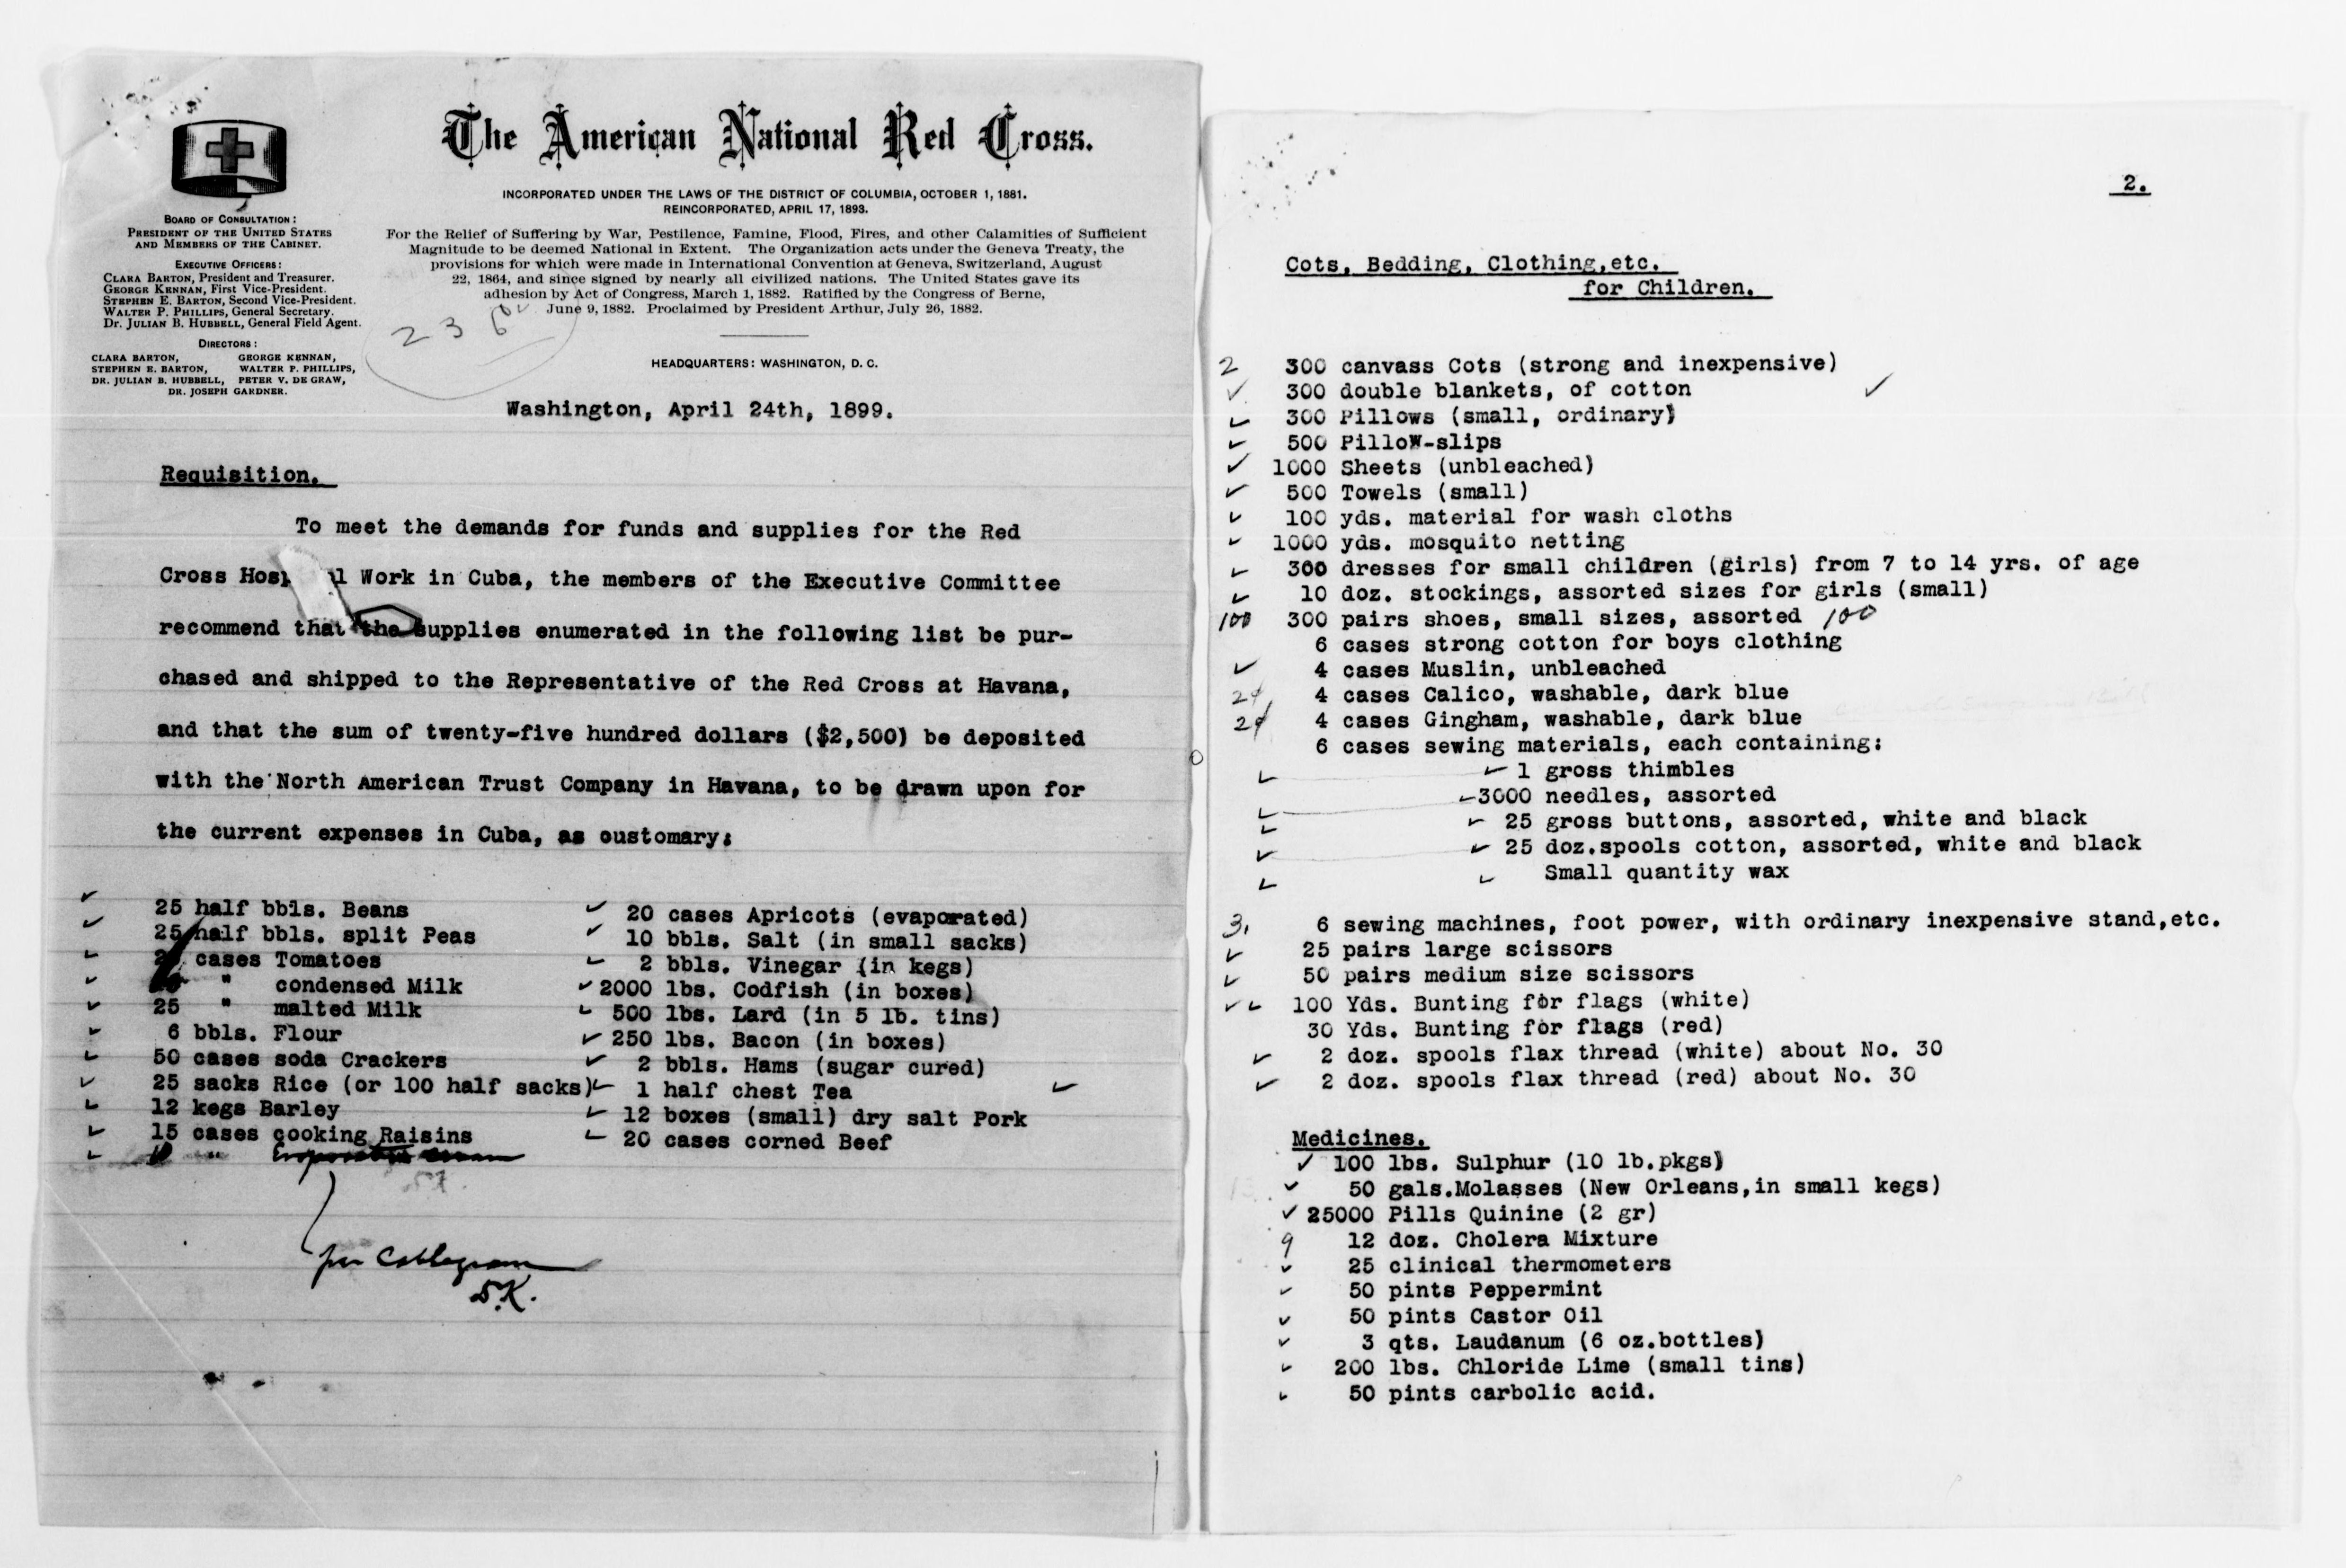 The American National Red Cross.
INCORPORATED UNDER THE LAWS OF THE DISTRICT OF COLUMBIA, OCTOBER 1, 1881.
REINCORPORATED, APRIL 17, 1893.
For the Relief of Suffering by War, Pestilence, Famine, Flood, Fires, and other Calamities of Sufficient
Magnitude to be deemed National in Extent. The Organization acts under the Geneva Treaty, the
provisions for which were made in International Convention at Geneva, Switzerland, August
22, 1864, and since signed by nearly all civilized nations. The United States gave its
adhesion by Act of Congress, March 1, 1882. Ratified by the Congress of Berne,
June 9, 1882. Proclaimed by President Arthur, July 26, 1882.
HEADQUARTERS: WASHINGTON, D. C.
BOARD OF CONSULTATION:
PRESIDENT OF THE UNITED STATES
AND MEMBERS OF THE CABINET.
EXECUTIVE OFFICERS:
CLARA BARTON, President and Treasurer.
GEORGE KENNAN, First Vice-President.
STEPHEN E. BARTON, Second Vice-President.
WALTER P. PHILLIPS, General Secretary.
Dr. JULIAN B. HUBBELL, General Field Agent.
DIRECTORS:
CLARA BARTON, GEORGE KENNAN,
STEPHEN E. BARTON, WALTER P. PHILLIPS,
DR. JULIAN B. HUBBELL, PETER V. DE GRAW,
DR. JOSEPH GARDNER.
23
Washington, April 24th, 1899.
Requisition.
To meet the demands for funds and supplies for the Red
Cross Work in Cuba, the members of the Executive Committee
recommend that the supplies enumerated in the following list be pur-
chased and shipped to the Representative of the Red Cross at Havana,
and that the sum of twenty-five hundred dollars ($2,500) be deposited
with the North American Trust Company in Havana, to be drawn upon for
the current expenses in Cuba, as customary:
25 half bbls. Beans
25 half bbls. split Peas
cases Tomatoes
" condensed Milk
25 " malted Milk
6 bbls. Flour
50 cases soda Crackers
25 sacks Rice (or 100 half sacks)
12 kegs Barley
15 cases cooking Raisins
10 "
20 cases Apricots (evaporated)
10 bbls. Salt (in small sacks)
2 bbls. Vinegar (in kegs)
2000 lbs. Codfish (in boxes)
500 lbs. Lard (in 5 lb. tins)
250 lbs. Bacon (in boxes)
2 bbls. Hams (sugar cured)
1 half chest Tea
12 boxes (small) dry salt Pork
20 cases corned Beef
per Cablegram
S.K.
2.
Cots, Bedding, Clothing,etc.
for Children.
2 300 canvass Cots (strong and inexpensive)
300 double blankets, of cotton
300 Pillows (small, ordinary)
500 PilloW-slips
1000 Sheets (unbleached)
500 Towels (small)
100 yds. material for wash cloths
1000 yds. mosquito netting
300 dresses for small children (girls) from 7 to 14 yrs. of age
10 doz. stockings, assorted sizes for girls (small)
100 300 pairs shoes, small sizes, assorted 100
6 cases strong cotton for boys clothing
4 cases Muslin, unbleached
4 cases Calico, washable, dark blue
4 cases Gingham, washable, dark blue
6 cases sewing materials, each containing:
1 gross thimbles
3000 needles, assorted
25 gross buttons, assorted, white and black
25 doz.spools cotton, assorted, white and black
Small quantity wax
3. 6 sewing machines, foot power, with ordinary inexpensive stand,etc.
25 pairs large scissors
50 pairs medium size scissors
100 Yds. Bunting for flags (white)
30 Yds. Bunting for flags (red)
2 doz. spools flax thread (white) about No. 30
2 doz. spools flax thread (red) about No. 30
Medicines.
100 lbs. Sulphur (10 lb.pkgs)
50 gals.Molasses (New Orleans,in small kegs)
25000 Pills Quinine (2 gr)
9 12 doz. Cholera Mixture
25 clinical thermometers
50 pints Peppermint
50 pints Castor Oil
3 qts. Laudanum (6 oz.bottles)
200 lbs. Chloride Lime (small tins)
50 pints carbolic acid.